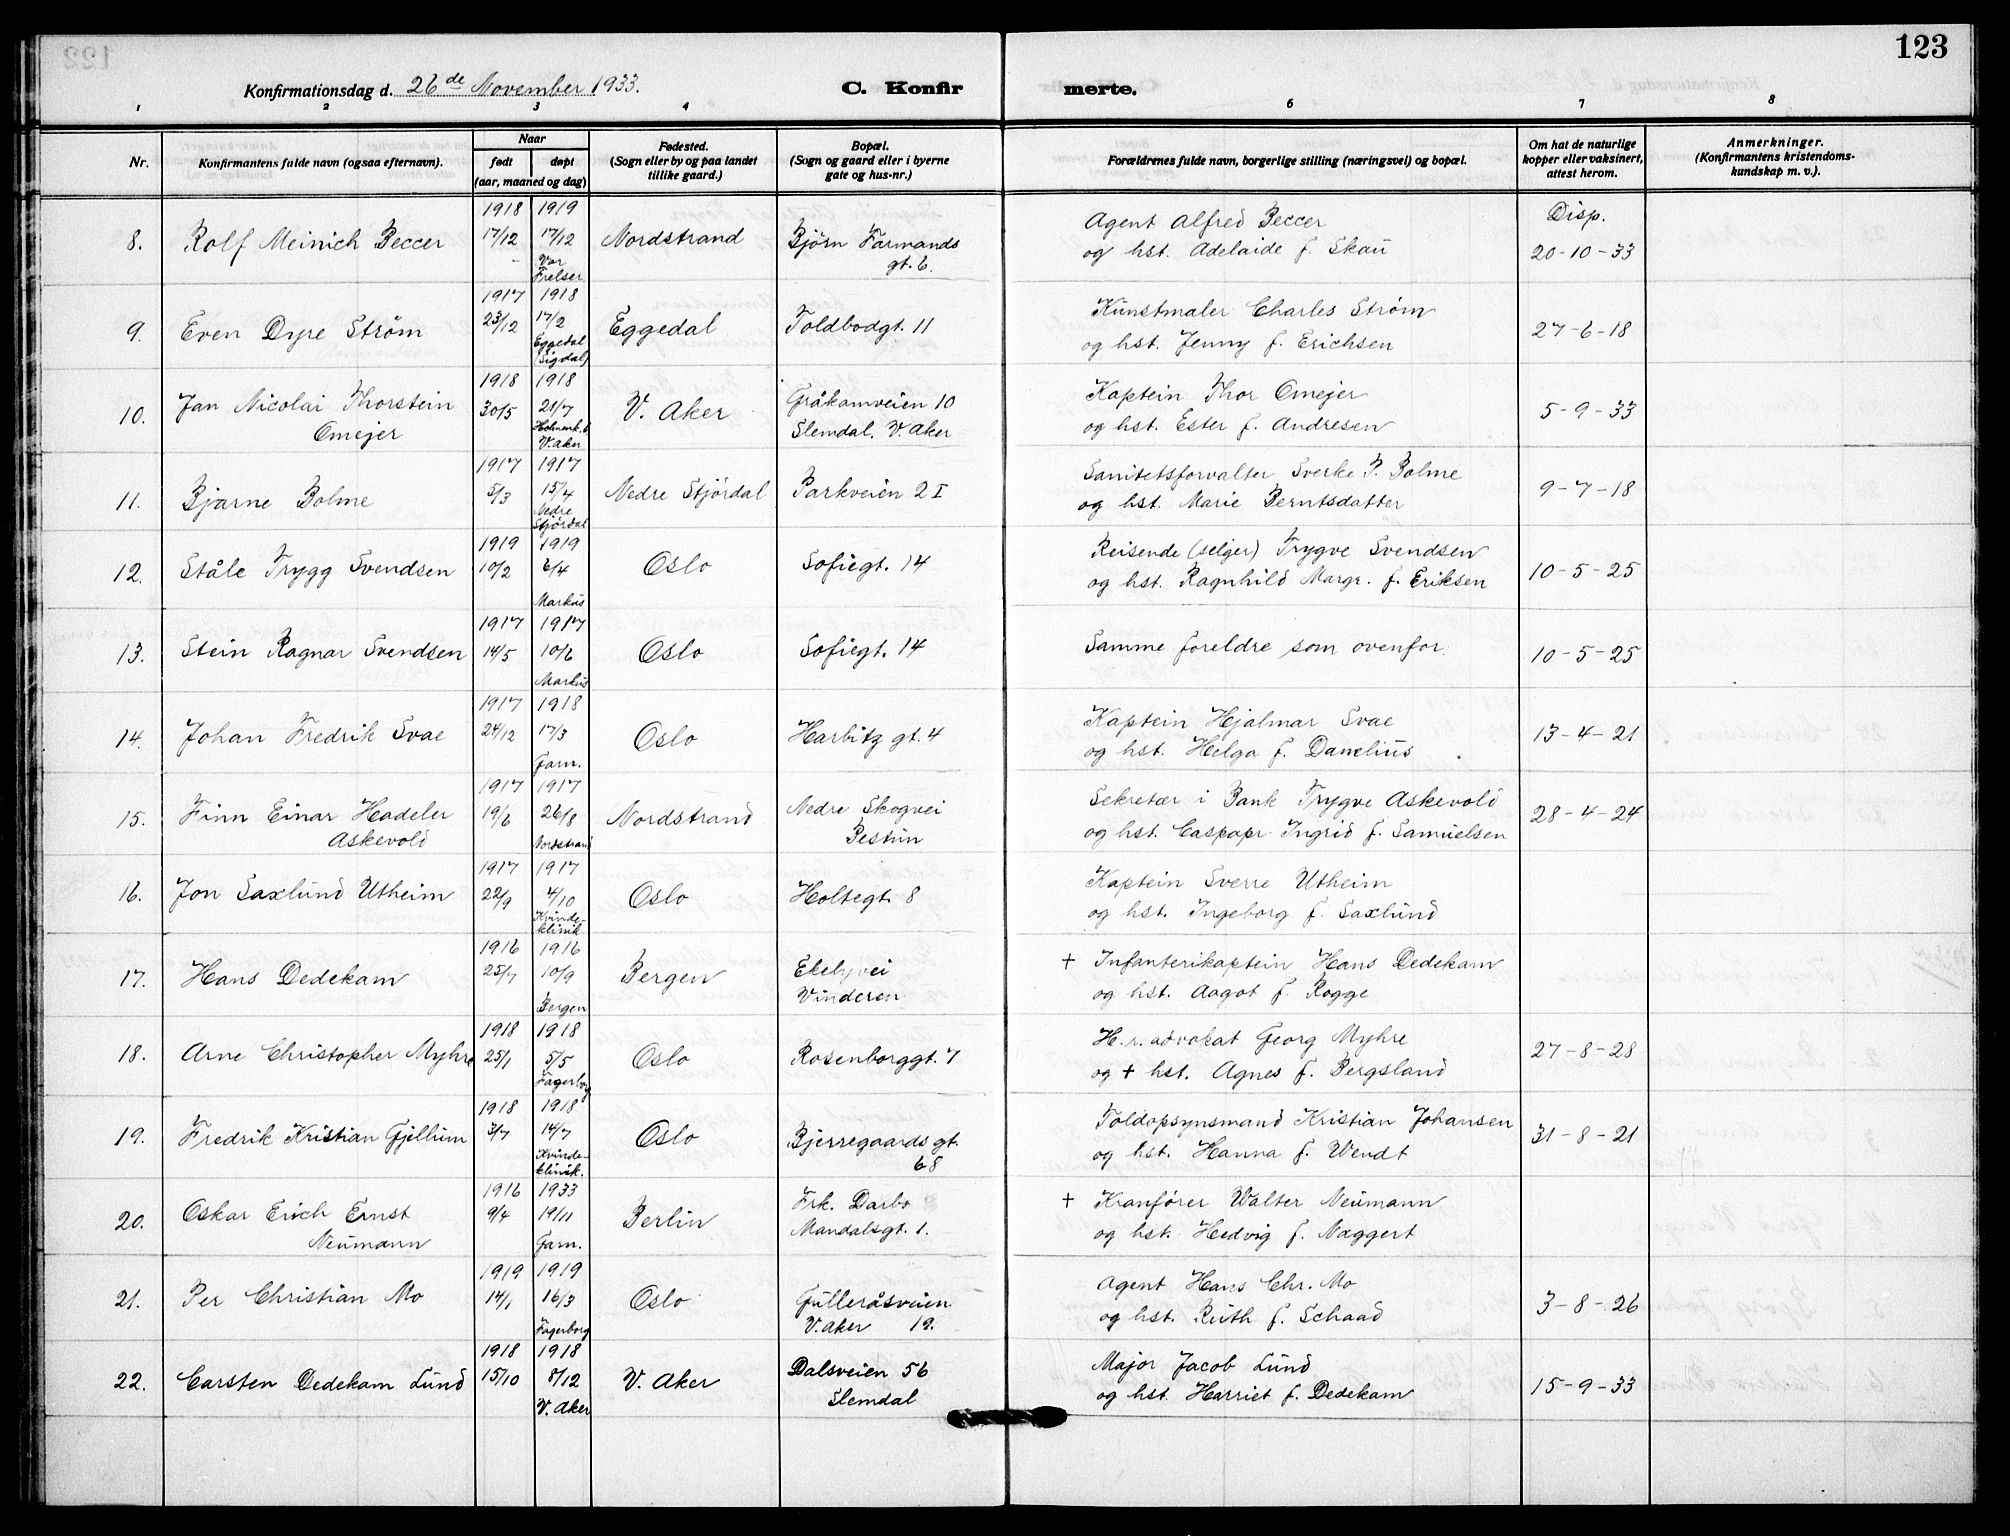 123
Konfirmationsdag d. 26de November 1933.
C. Konfir
merte.
1 2 3 4 6 7 8
Nr.
Konfirmantens fulde navn (ogsaa efternavn).
Naar
født døpt
(aar, maaned og dag)
Fødested.
(Sogn eller by og paa landet
tillike gaard.)
Bopæl.
(Sogn og gaard eller i byerne
gate og hus-nr.)
Forældrenes fulde navn, borgerlige stilling (næringsvei) og bopæl.
Om hat de naturlige
kopper eller vaksinert,
attest herom.
Anmerkninger.
(Konfirmantens kristendoms-
kundskap m. v.).
1918 1919 Agent Alfred Beccer Disp.
8. Rolf Meinich Beccer 17/12 17/12 Nordstrand Bjørn Farmands
Vor gt. 6. og hst. Adelaide f. Skau 20-10-33
Frelser
1917 1918 Kunstmaler Charles Strøm
9. Even Dyre Strøm 23/12 17/2 Eggedal Toldbodgt. 11 27-6-18
Eggedal og hst. Jenny f. Erichsen
(Sigdal)
1918 1918 Kaptein Thor Omejer
10. Jan Nicolai Thorstein 30/5 21/7 V. Aker Gråkamveien 10 5-9-33
Omejer Holmenk. k Slemdal. V. Aker og hst. Ester f. Andresen
V. Aker
1917 1917 Sanitetsforvalter Sverke P. Bolme
11. Bjarne Bolme 5/3 15/4 Nedre Stjórdal Parkveien 2 I 9-7-18
Nedre og hst. Marie Berntsdatter
Stjórdal
1919 1919 Reisende (selger) Trygve Svendsen
12. Ståle Trygg Svendsen 10/2 6/4 Oslo Sofiegt. 14 10-5-25
Markus og hst. Ragnhild Margr. f. Eriksen
1917 1917
13. Stein Ragnar Svendsen 14/5 10/6 Oslo Sofiegt. 14 Samme foreldre som ovenfor. 10-5-25
Markus
1917 1918 Kaptein Hjalmar Svae
14. Johan Fredrik Svae 24/12 17/3 Oslo Harbitz gt. 4 13-4-21
Garn. og hst. Helga f. Danelius
1917 1917 Sekretær i Bank Trygve Askevold
15. Finn Einar Hadeler 19/6 26/8 Nordstrand Nedre Skogvei 28-4-24
Askevold Nordstrand Bestun og hst. Caspapr. Ingrid f. Samuelsen
1917 1917 Kaptein Sverre Utheim
16. Jon Saxlund Utheim 22/9 4/10 Oslo Holtegt. 8
Kvinde- og hst. Ingeborg f. Saxlund
klinik
1916 1916 + Infanterikaptein Hans Dedekam
17. Hans Dedekam 25/7 10/9 Bergen Ekelyvei
Bergen Vinderen og hst. Aagot f. Rogge
1918 1918 H. r. advokat Georg Myhre
18. Arne Christopher Myhre 25/1 5/5 Oslo Rosenborggt. 7 27-8-28
Fagerborg og + hst. Agnes f. Bergsland
1918 1918 Toldopsynsmand Kristian Johansen
19. Fredrik Kristian Gjellum 3/7 14/7 Oslo Bjerregaards gt. 31-8-21
Kvinde- 68 og hst. Hanna f. Wendt
klinik.
1916 1933 Frk. Darbo + Kranfórer Walter Neumann
20. Oskar Erich Ernst 9/4 19/11 Berlin Mandalsgt. 1.
Neumann Garn. og hst. Hedvig f. Naggert
1919 1919 Agent Hans Chr. Mo
21. Per Christian Mo 14/1 16/3 Oslo Gulleråsveien 3-8-26
Fagerborg V. Aker 19. og hst. Ruth f. Schaad
1918 1918 Major Jacob Lund
22. Carsten Dedekam Lund 15/10 8/12 V. Aker Dalsveien 56 15-9-33
V. Aker Slemdal og hst. Harriet f. Dedekam